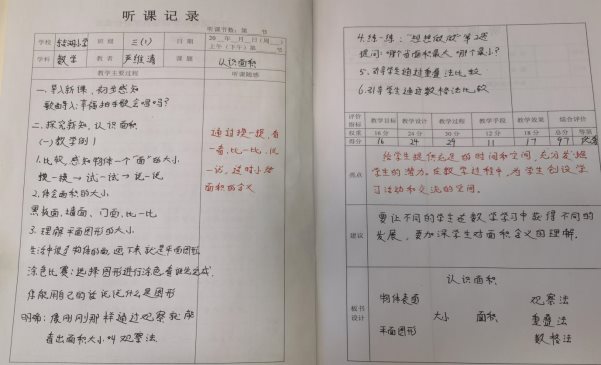 听课记录
听课节数：第 节
学校 小学 班级 三(1) 日期 20 年 月 日(周 )
上午(下午)第 节
学科 数学 教者 严维清 课题 认识面积
教学主要过程 听课随感
一、导入新课，初步感知
歌曲导入：幸福拍手歌会唱吗？
二、探究新知，认识面积
(一)教学例1
1.比较，感知物体一个“面”的大小
摸一摸→试一试→说一说
2.体会面积的大小
黑板面、墙面、门面，比一比
3.理解平面图形的大小
生活中很多物体的面，画下来就是平面图形
涂色比赛：选择图形进行涂色看谁先完成
你能用自己的话说说什么是图形
明确：像刚刚那样通过观察就能
看出面积大小叫观察法
通过摸一摸，看
一看，比一比，说
一说，
面积的含义
4.练一练：“想想做做”第2题
提问：哪个省面积最大，哪个最小？
5.引导学生通过重叠法比较
6.引导学生通过数格法比较
评价指标 教学目标 教学设计 教学过程 教学手段 教学效果 综合评价
权重 16分 24分 30分 12分 18分 总分 等第
得分 16 24 29 11 17 97 优秀
亮点
给学生提供充足的时间和空间，充分发掘
学生的潜力。在教学过程中，为学生创设学
习活动和交流的空间。
建议
要让不同的学生在数学学习中获得不同的
发展，要加深学生对面积含义的理解。
板书设计
认识面积
物体表面 观察法
大小 面积 重叠法
平面图形 数格法